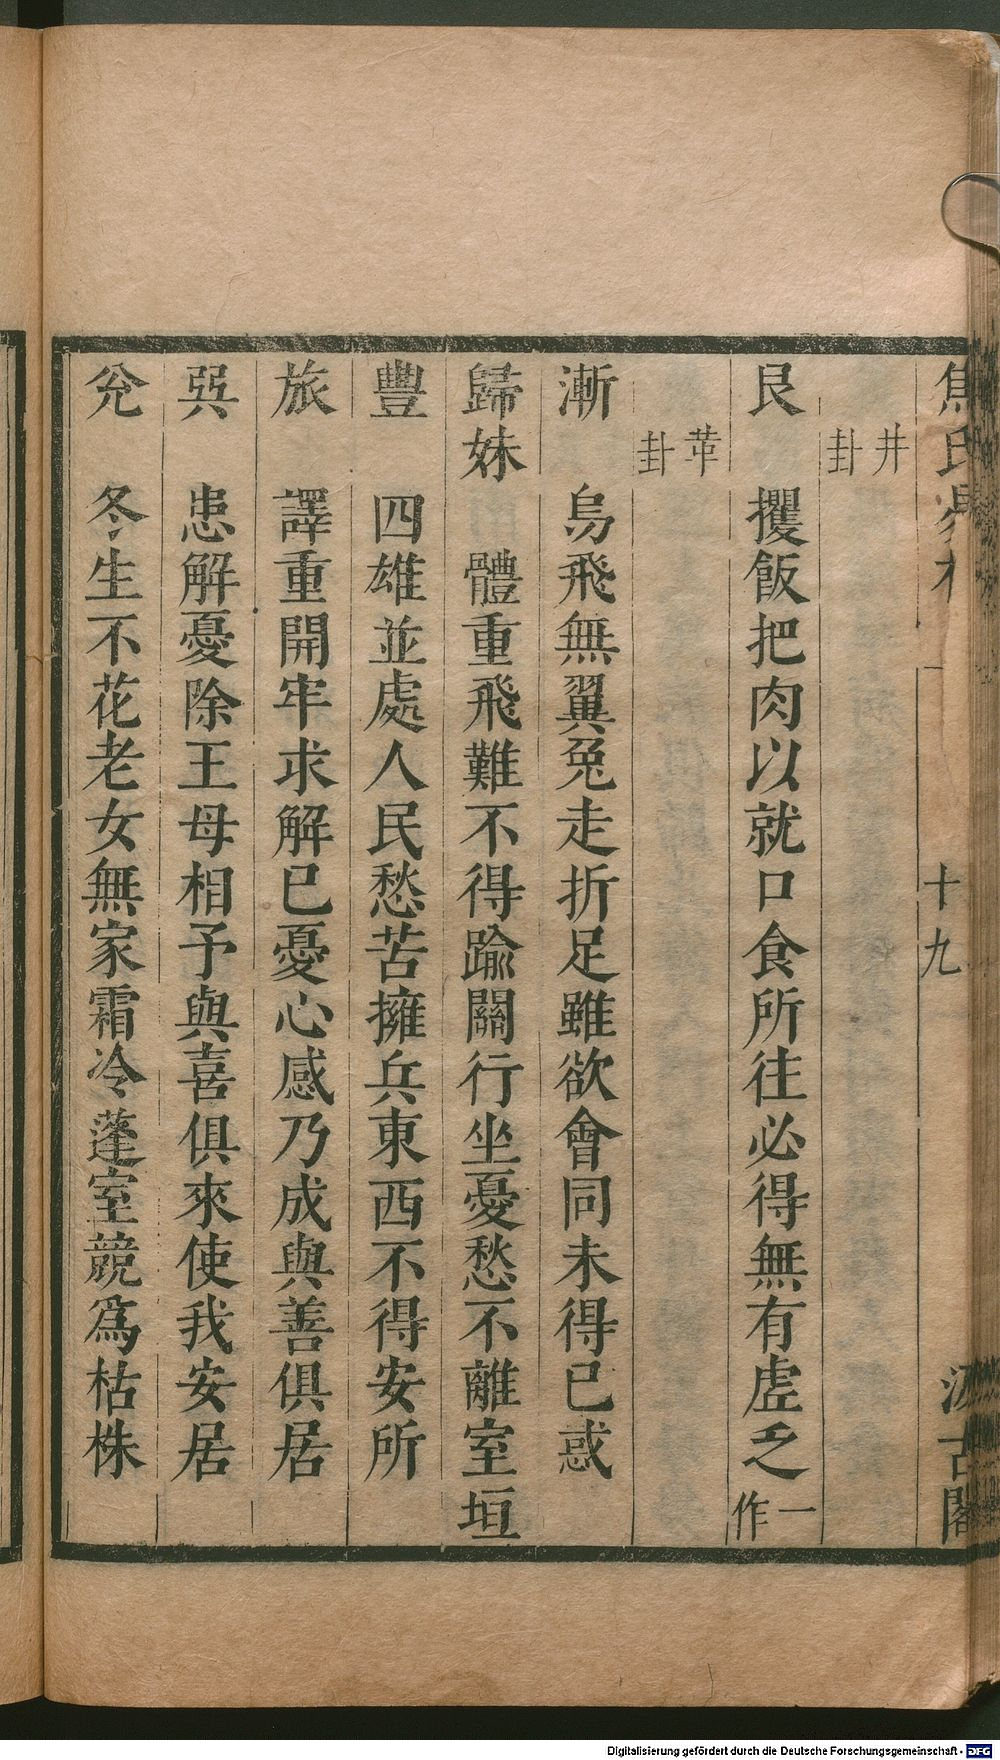 焦氏易林
十九
汲古閣
井卦
艮 攫飯把肉以就口食所往必得無有虛乏一作
革卦
漸 鳥飛無翼兔走折足雖欲會同未得已惑
歸妹 體重飛難不得踰關行坐憂愁不離室垣
豐 四雄並處人民愁苦擁兵東西不得安所
旅 譯重開牢求解已憂心感乃成與善俱居
巽 患解憂除王母相予與喜俱來使我安居
兌 冬生不花老女無家霜冷蓬室競爲枯株
Digitalisierung gefördert durch die Deutsche Forschungsgemeinschaft - DFG